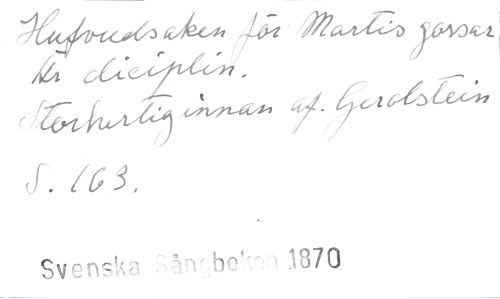 Hufvudsaken för Martis gossar
är diciplin.
Storhertiginnan af. Gerolstein
S. 163.
Svenska Sångboken 1870